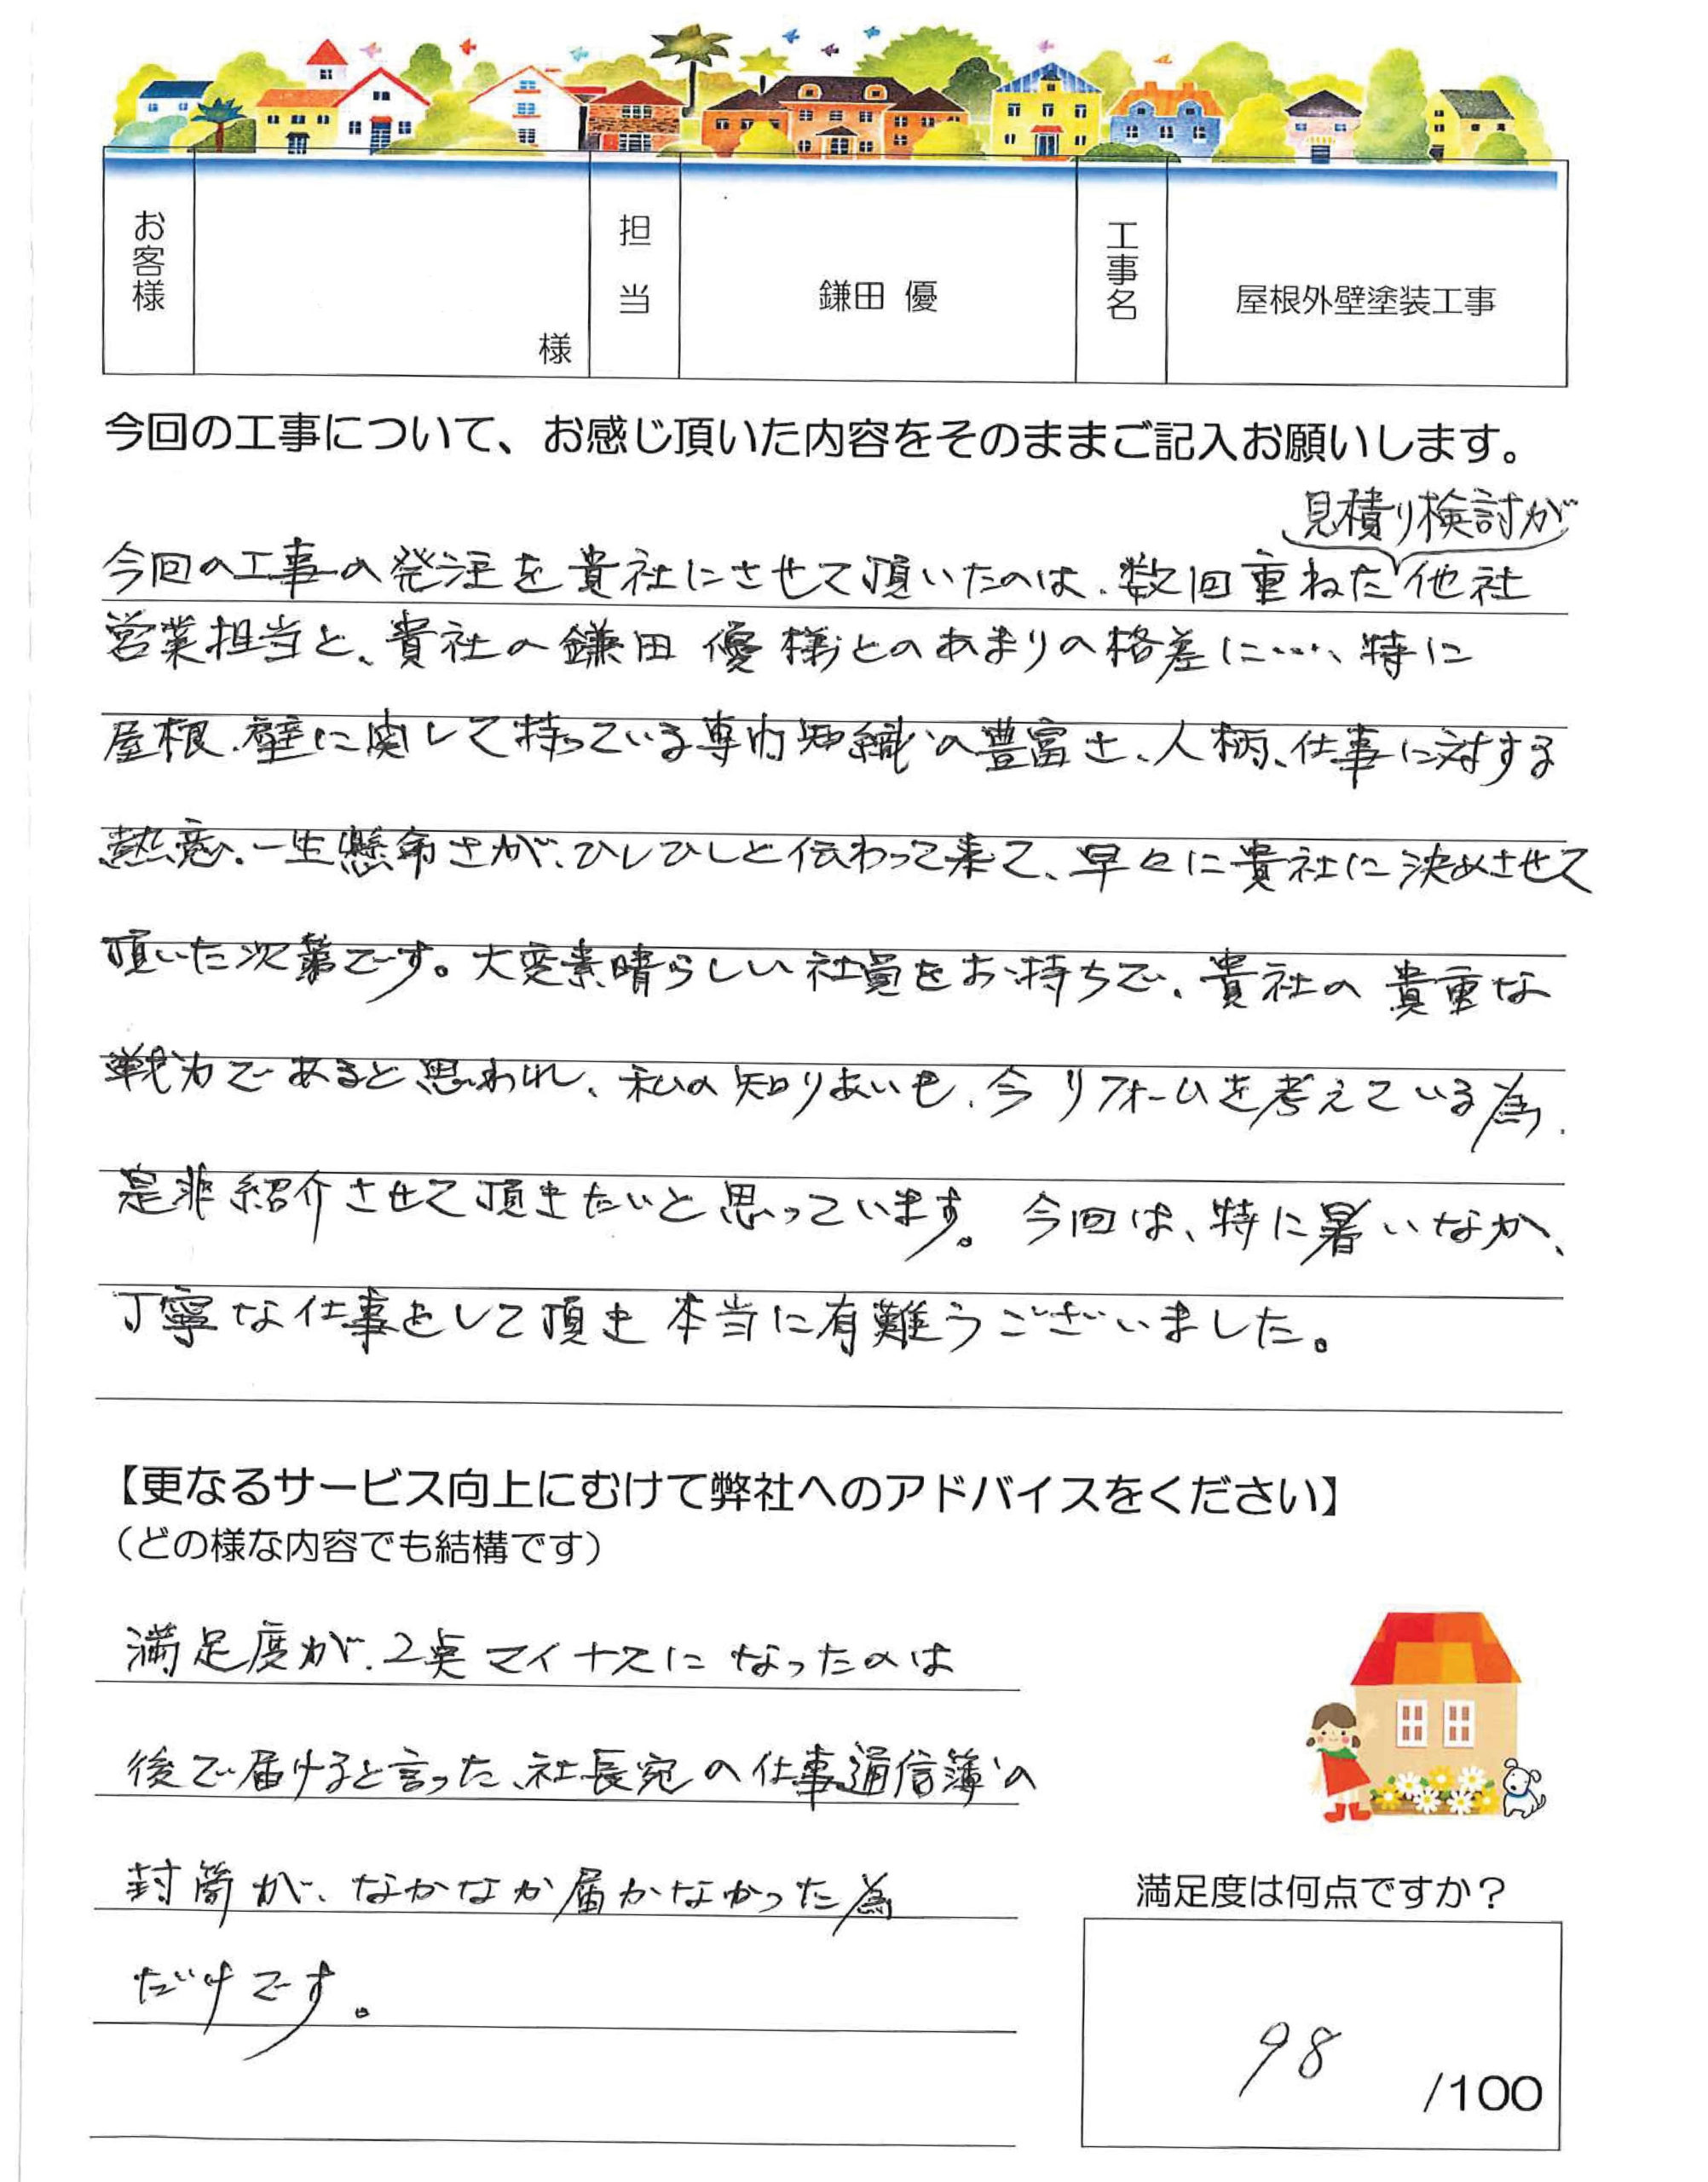 お客様
様
担当
鎌田 優
工事名
屋根外壁塗装工事
今回の工事について、お感じ頂いた内容をそのままご記入お願いします。
見積り検討が
今回の工事の発注を貴社にさせて頂いたのは、数回重ねた他社
営業担当と、貴社の鎌田 優様とのあまりの格差に…、特に
屋根、壁に関して持っている専門知識の豊富さ、人柄、仕事に対する
熱意、一生懸命さが、ひしひしと伝わって来て、早々に貴社に決めさせて
頂いた次第です。大変素晴らしい社員をお持ちで、貴社の貴重な
戦力であると思われ、私の知りあいも、今リフォームを考えている為、
是非紹介させて頂きたいと思っています。今回は、特に暑いなか、
丁寧な仕事をして頂き本当に有難うございました。
【更なるサービス向上にむけて弊社へのアドバイスをください】
（どの様な内容でも結構です）
満足度が、2点マイナスになったのは
後で届けると言った、社長宛の仕事通信簿の
封筒が、なかなか届かなかった為
だけです。
満足度は何点ですか？
98
/100